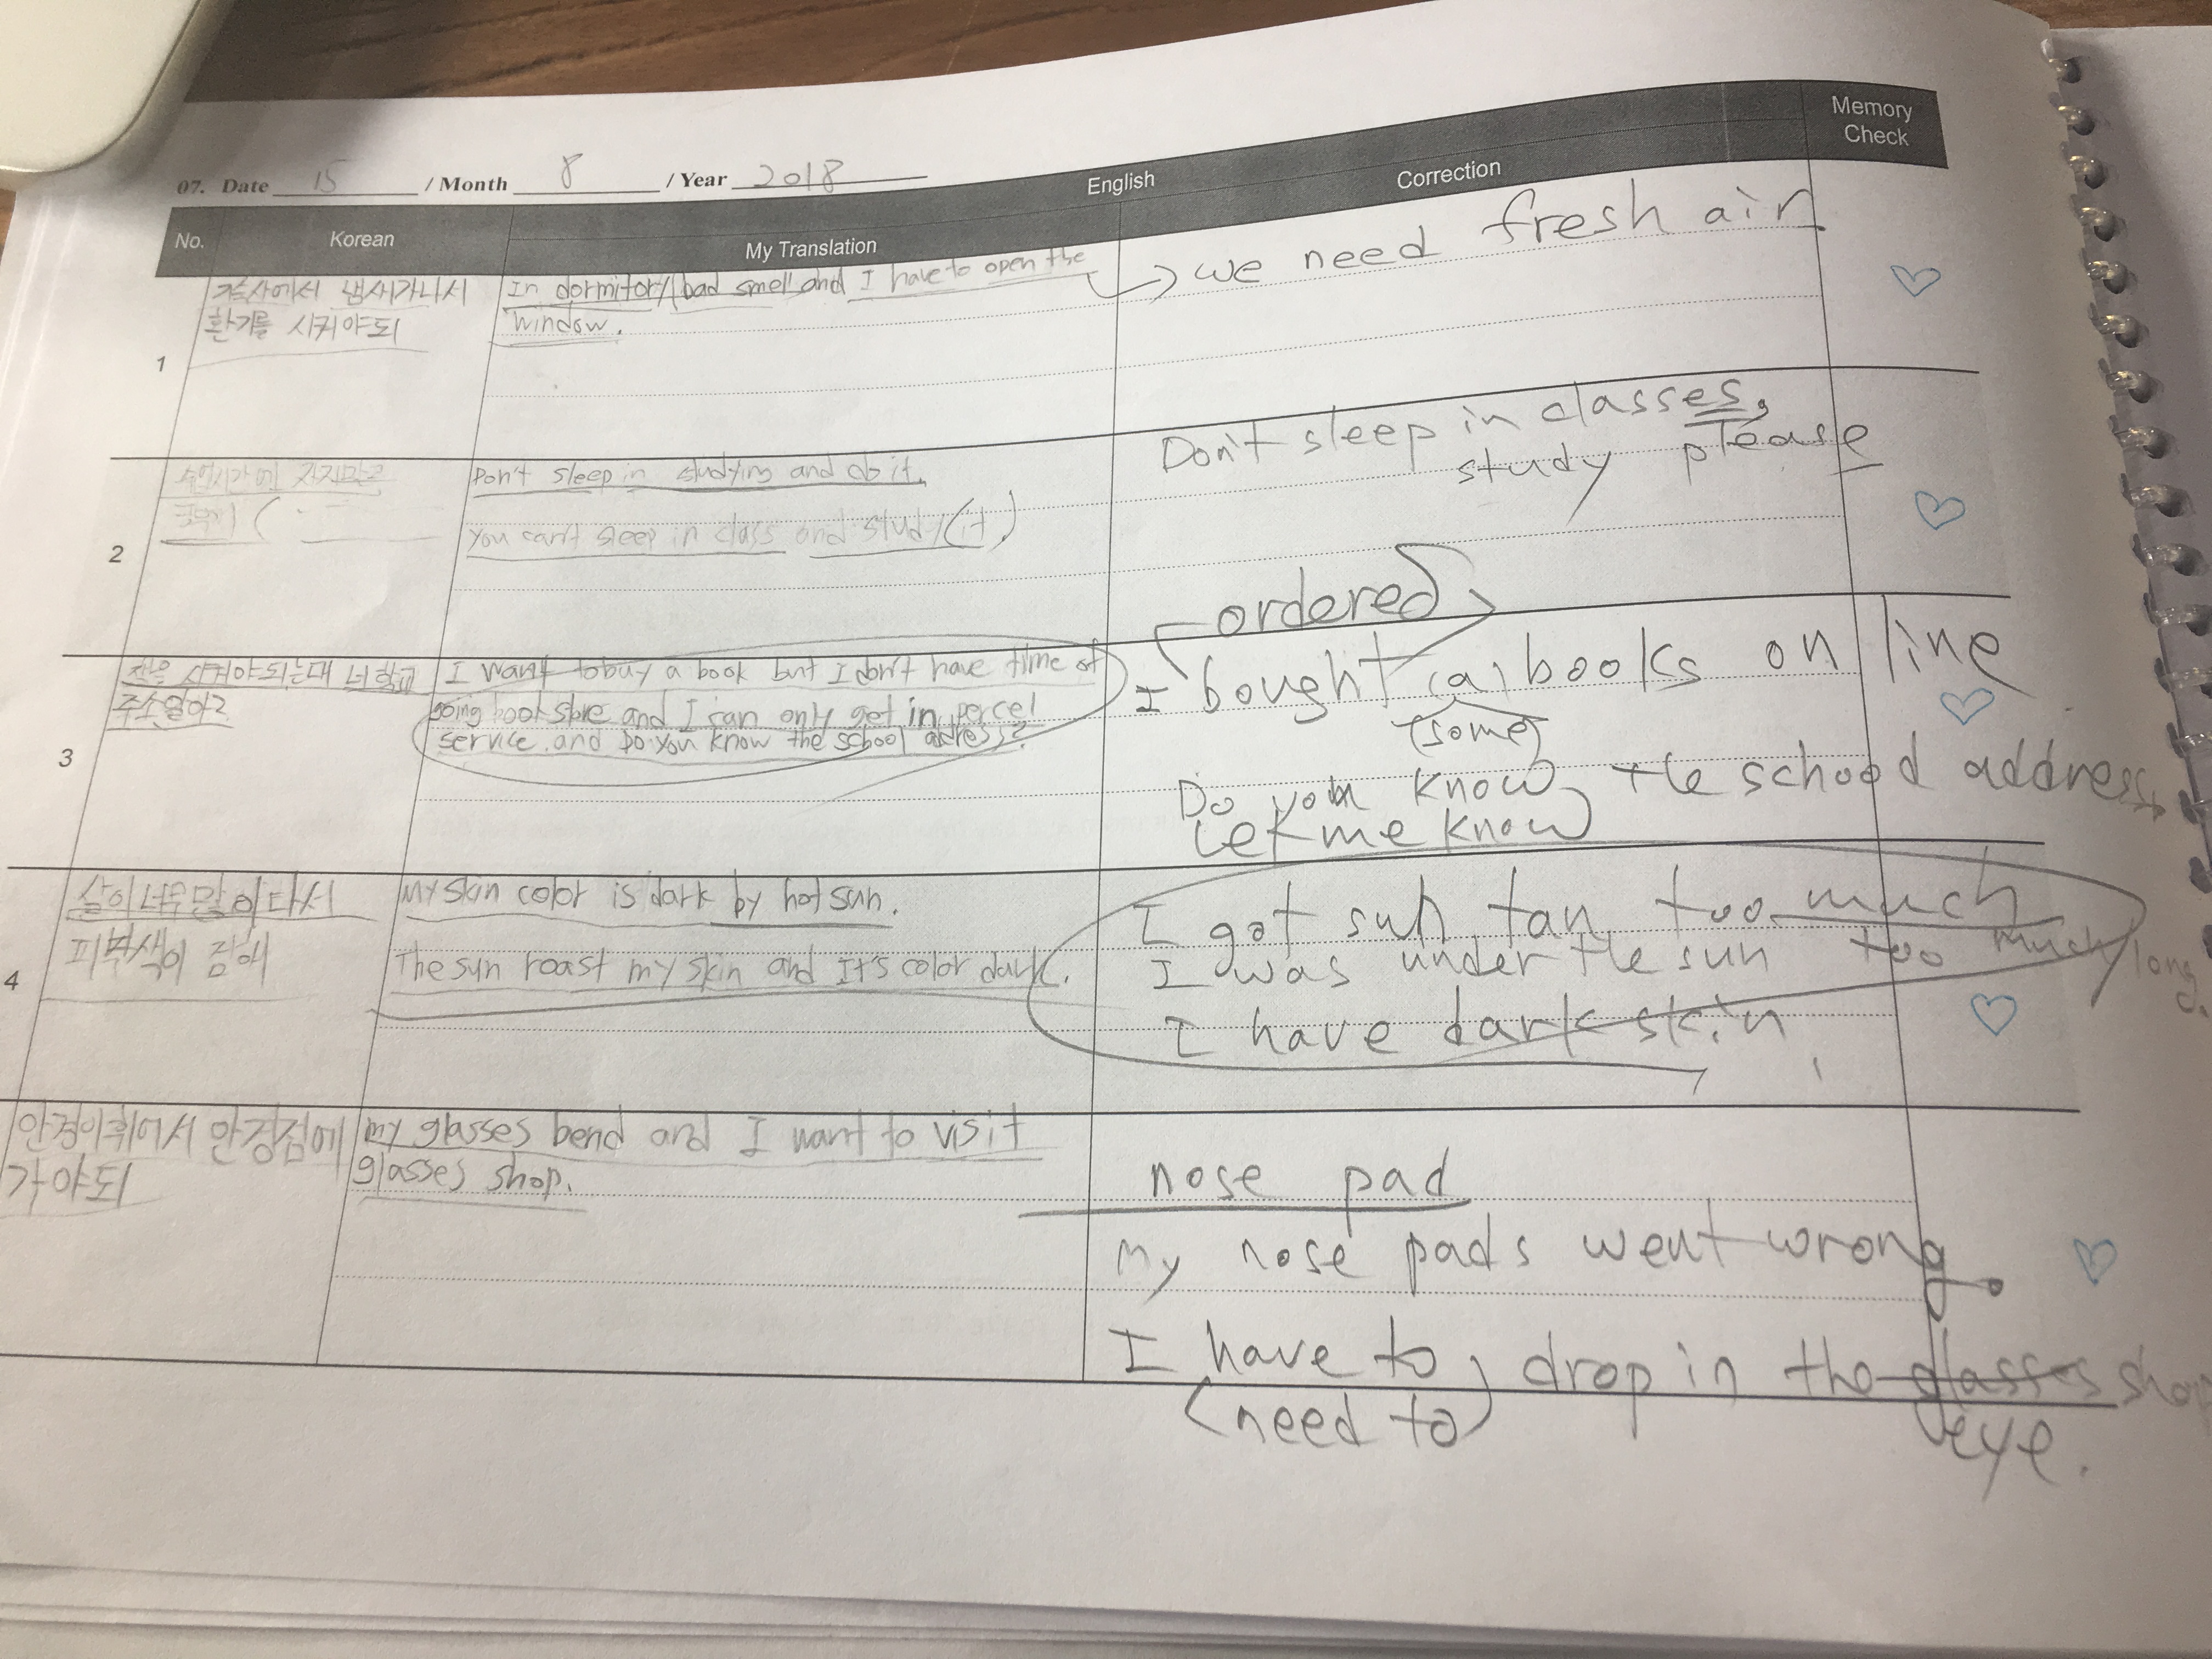 07. Date 15 / Month 8 / Year 2018
No. Korean English Memory Check
My Translation Correction
1
기숙사에서 냄새가나서
환기를 시켜야되
In dormitory bad smell and I have to open the
window.
we need fresh air
2
수업시간에 자지말고
Don't sleep in studying and do it.
You can't sleep in class and study (it)
Don't sleep in classes,
study please
3
책을 시켜야되는데 너 학교
주소알아?
I want to buy a book but I don't have time of
going book store and I can only get in percel
service. and Do you know the school address?
ordered
I bought (a) books on line
(some)
Do you know the school address
Let me know
4
살이너무많이타서
피부색이 검해
My skin color is dark by hot sun.
The sun roast my skin and It's color dark.
I got sun tan too much
I was under the sun too much/long.
I have dark skin
안경이휘어서 안경점에
가야되
my glasses bend and I want to visit
glasses shop.
nose pad
my nose pads went wrong.
I have to drop in the glasses shop
(need to) eye.